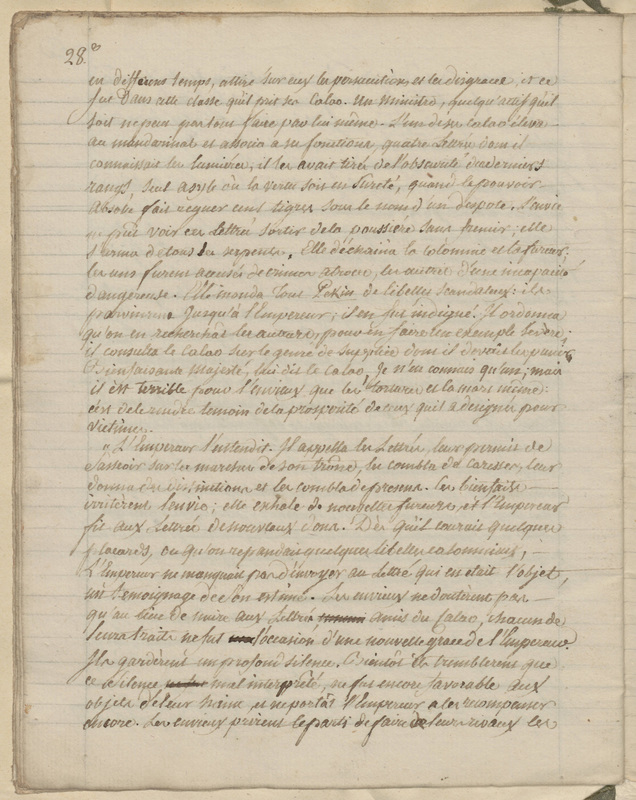 28.
en différens temps, attiré sur eux la persecution, et la disgrace, et ce
fut dans cette classe qu'il prit ses Calao. Un ministre, quelqu'actif qu'il
soit ne peut pas tout faire par lui même. L'un de ses Calao éleva
au mandarinat et associa à ses fonctions, quatre Lettrés dont il
connaissait les lumières, il les avait tirés de l'obscurité des derniers
rangs, seul asyle où la vertu soit en sureté, quand le pouvoir
absolu fait régner cent tigres sous le nom d'un despote. L'envie
ne put voir ces Lettrés sortir de la poussiere sans fremir; elle
s'arma de tous ses serpents, Elle déchaina la calomnie et la fureur;
les uns furent accusés de crimes atroces, les autres d'une incapacité
dangereuse. Elle inonda tout Pekin de libelles scandaleux: ils
parvinrent jusqu'à l'Empereur; il en fut indigné. Il ordonna
qu'on en recherchat les auteurs, pour en faire un exemple sévère;
il consulta le Calao sur le genre de supplice dont il devoit les punir.
Bienfaisante Majesté, lui dit le Calao, Je n'en connais qu'un; mais
il est terrible pour l'envieux que les tortures et la mort même:
c'est de le rendre temoin de la prospérité de ceux qu'il a désignés pour
victimes.
« L'Empereur l'entendit. Il appella les Lettrés, leur permit de
s'asseoir sur les marches de son trône, les combla de caresses, leur
donna des distinctions et les combla de presens. Ces bienfaits
irritèrent l'envie; elle exhala de nouvelles fureurs, et l'Empereur
fit aux Lettrés de nouveaux dons. Dès qu'il courait quelques
placards, ou qu'on repandait quelques libelles calomnieux,
L'Empereur ne manquait pas d'envoyer au Lettré qui en était l'objet,
un temoignage de son estime. Les envieux ne doutèrent pas
qu'au lieu de nuire aux Lettrés amis du Calao, chacun de
leurs traits ne fut l'occasion d'une nouvelle grace de l'Empereur.
Ils gardèrent un profond silence. Bientôt ils tremblerent que
ce silence mal interprété, ne fut encore favorable aux
objets de leur haine et ne portât l'Empereur a les recompenser
encore. Les envieux prirent le parti de faire de leurs rivaux les